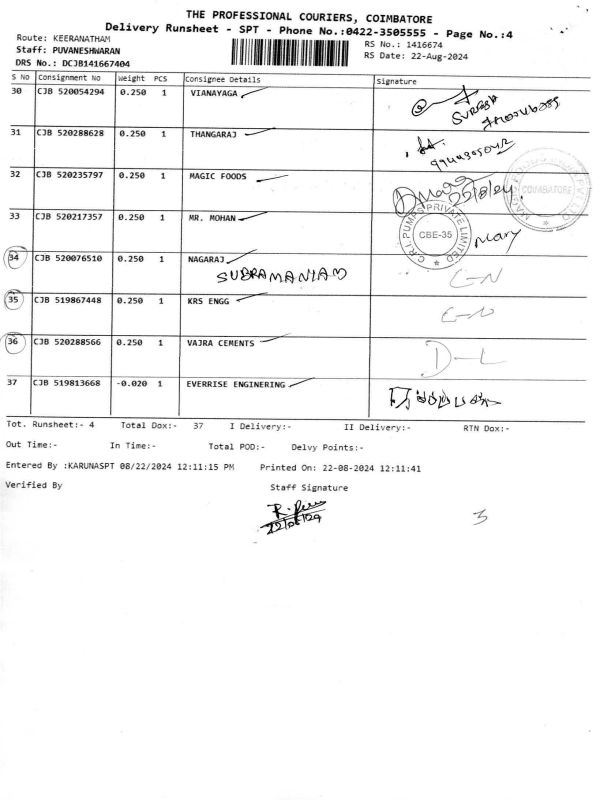 THE PROFESSIONAL COURIERS, COIMBATORE
Delivery Runsheet - SPT - Phone No.:0422-3505555 - Page No.:4
Route: KEERANATHAM
RS No.: 1416674
Staff: PUVANESHWARAN
RS Date: 22-Aug-2024
DRS No.: DCJB141667404
S No Consignment No Weight PCS Consignee Details Signature
30 CJB 520054294 0.250 1 VIANAYAGA
SURESH
31 CJB 520288628 0.250 1 THANGARAJ
32 CJB 520235797 0.250 1 MAGIC FOODS
COIMBATORE
33 CJB 520217357 0.250 1 MR. MOHAN
C.R.I. PUMPS PRIVATE LIMITED
CBE-35
Mary
34 CJB 520076510 0.250 1 NAGARAJ
SUBRAMANIAM
35 CJB 519867448 0.250 1 KRS ENGG
36 CJB 520288566 0.250 1 VAJRA CEMENTS
D-L
37 CJB 519813668 -0.020 1 EVERRISE ENGINERING
Tot. Runsheet:- 4 Total Dox:- 37 I Delivery:- II Delivery:- RTN Dox:-
Out Time:- In Time:- Total POD:- Delvy Points:-
Entered By :KARUNASPT 08/22/2024 12:11:15 PM Printed On: 22-08-2024 12:11:41
Verified By Staff Signature
22/08/24
3